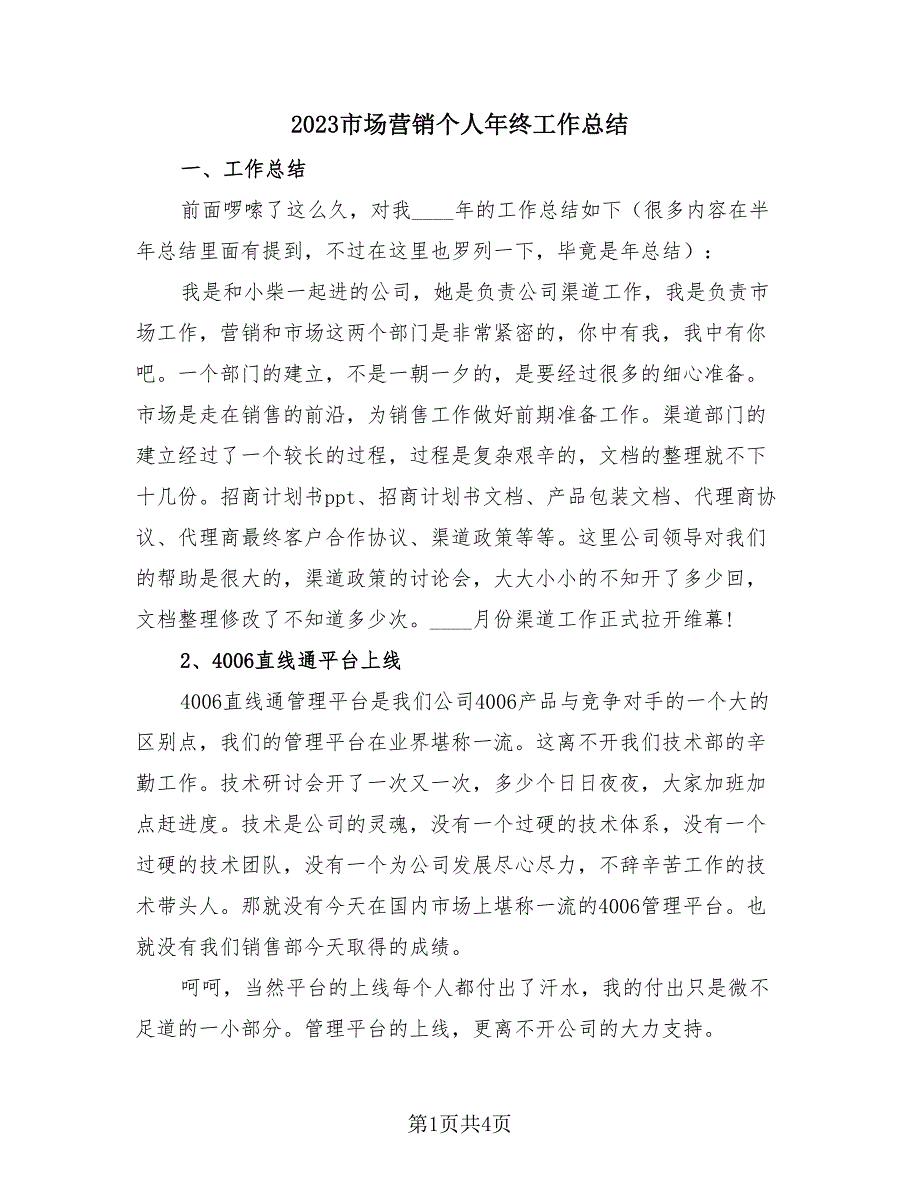 2023市场营销个人年终工作总结
一、工作总结
前面啰嗦了这么久，对我____年的工作总结如下（很多内容在半
年总结里面有提到，不过在这里也罗列一下，毕竟是年总结）：
我是和小柴一起进的公司，她是负责公司渠道工作，我是负责市
场工作，营销和市场这两个部门是非常紧密的，你中有我，我中有你
吧。一个部门的建立，不是一朝一夕的，是要经过很多的细心准备。
市场是走在销售的前沿，为销售工作做好前期准备工作。渠道部门的
建立经过了一个较长的过程，过程是复杂艰辛的，文档的整理就不下
十几份。招商计划书ppt、招商计划书文档、产品包装文档、代理商协
议、代理商最终客户合作协议、渠道政策等等。这里公司领导对我们
的帮助是很大的，渠道政策的讨论会，大大小小的不知开了多少回，
文档整理修改了不知道多少次。____月份渠道工作正式拉开维幕!
2、4006直线通平台上线
4006直线通管理平台是我们公司4006产品与竞争对手的一个大的
区别点，我们的管理平台在业界堪称一流。这离不开我们技术部的辛
勤工作。技术研讨会开了一次又一次，多少个日日夜夜，大家加班加
点赶进度。技术是公司的灵魂，没有一个过硬的技术体系，没有一个
过硬的技术团队，没有一个为公司发展尽心尽力，不辞辛苦工作的技
术带头人。那就没有今天在国内市场上堪称一流的4006管理平台。也
就没有我们销售部今天取得的成绩。
呵呵，当然平台的上线每个人都付出了汗水，我的付出只是微不
足道的一小部分。管理平台的上线，更离不开公司的大力支持。
第1页共4页